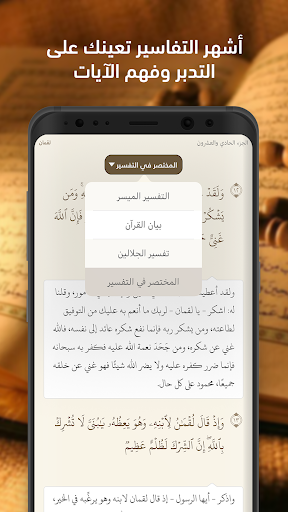 أشهر التفاسير تعينك على
التدبر وفهم الآيات
الجزء الحادي والعشرون
لقمان
المختصر في التفسير
التفسير الميسر
بيان القرآن
تفسير الجلالين
المختصر في التفسير
وَلَقَدْ
وَمَن
يَشْكُرْ
فَإِنَّ ٱللَّهَ
غَنِيٌّ
ولقد أعطينا
الأمور، وقلنا
له: اشكر - يا لقمان - لربك ما أنعم به عليك من التوفيق
لطاعته، ومن يشكر ربه فإنما نفع شكره عائد إلى نفسه، فالله
غني عن شكره، ومن جَحَدَ نعمة الله عليه فكفر به سبحانه
فإنما ضرر كفره عليه ولا يضر الله شيئًا فهو غني عن خلقه
جميعًا، محمود على كل حال.
وَإِذْ قَالَ لُقْمَٰنُ لِٱبْنِهِۦ وَهُوَ يَعِظُهُۥ يَٰبُنَىَّ لَا تُشْرِكْ
بِٱللَّهِۖ إِنَّ ٱلشِّرْكَ لَظُلْمٌ عَظِيمٌ
١٣
واذكر - أيها الرسول - إذ قال لقمان لابنه وهو يرغّبه في الخير،